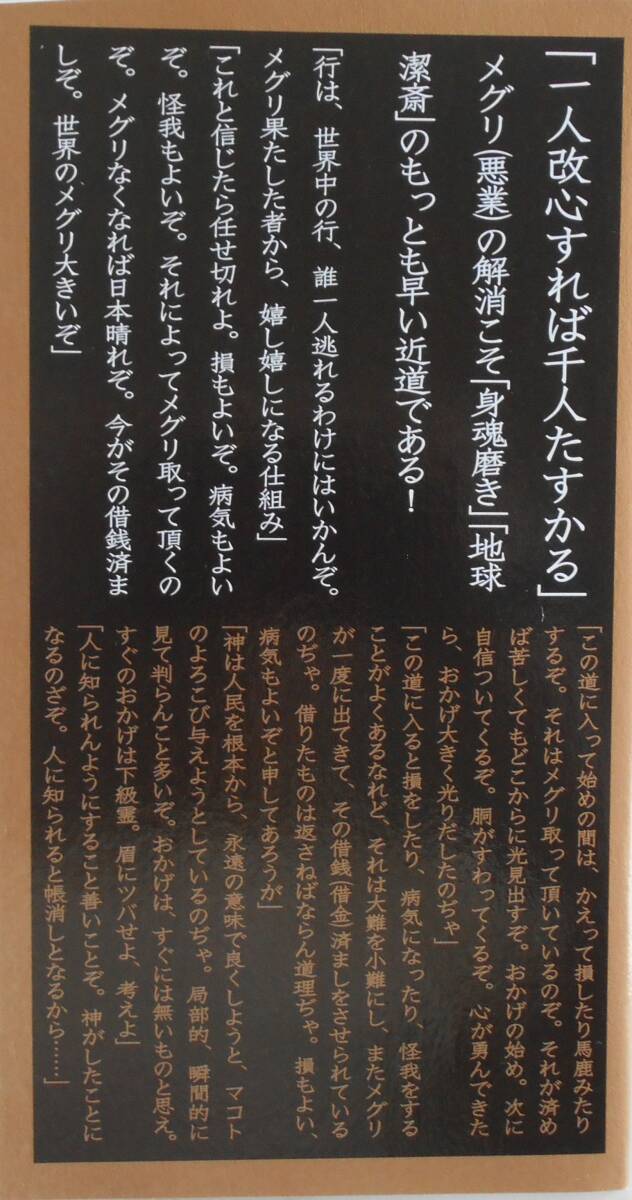 「一人改心すれば千人たすかる」
メグリ（悪業）の解消こそ「身魂磨き」「地球
潔斎」のもっとも早い近道である！
「行は、世界中の行、誰一人逃れるわけにはいかんぞ。
メグリ果たした者から、嬉し嬉しになる仕組み」
「これと信じたら任せ切れよ。損もよいぞ。病気もよい
ぞ。怪我もよいぞ。それによってメグリ取って頂くの
ぞ。メグリなくなれば日本晴れぞ。今がその借銭済ま
しぞ。世界のメグリ大きいぞ」
「この道に入って始めの間は、かえって損したり馬鹿みたり
するぞ。それはメグリ取って頂いているのぞ。それが済め
ば苦しくてもどこからに光見出すぞ。おかげの始め。次に
自信ついてくるぞ。胴がすわってくるぞ。心が勇んできた
ら、おかげ大きく光りだしたのぢゃ」
「この道に入ると損をしたり、病気になったり、怪我をする
ことがよくあるなれど、それは大難を小難にし、またメグリ
が一度に出てきて、その借銭（借金）済ましをさせられている
のぢゃ。借りたものは返さねばならん道理ぢゃ。損もよい、
病気もよいぞと申してあろうが」
「神は人民を根本から、永遠の意味で良くしようと、マコト
のよろこび与えようとしているのぢゃ。局部的、瞬間的に
見て判らんこと多いぞ。おかげは、すぐには無いものと思え。
すぐのおかげは下級霊。眉にツバせよ、考えよ」
「人に知られんようにすること善いことぞ。神がしたことに
なるのざぞ。人に知られると帳消しとなるから……」